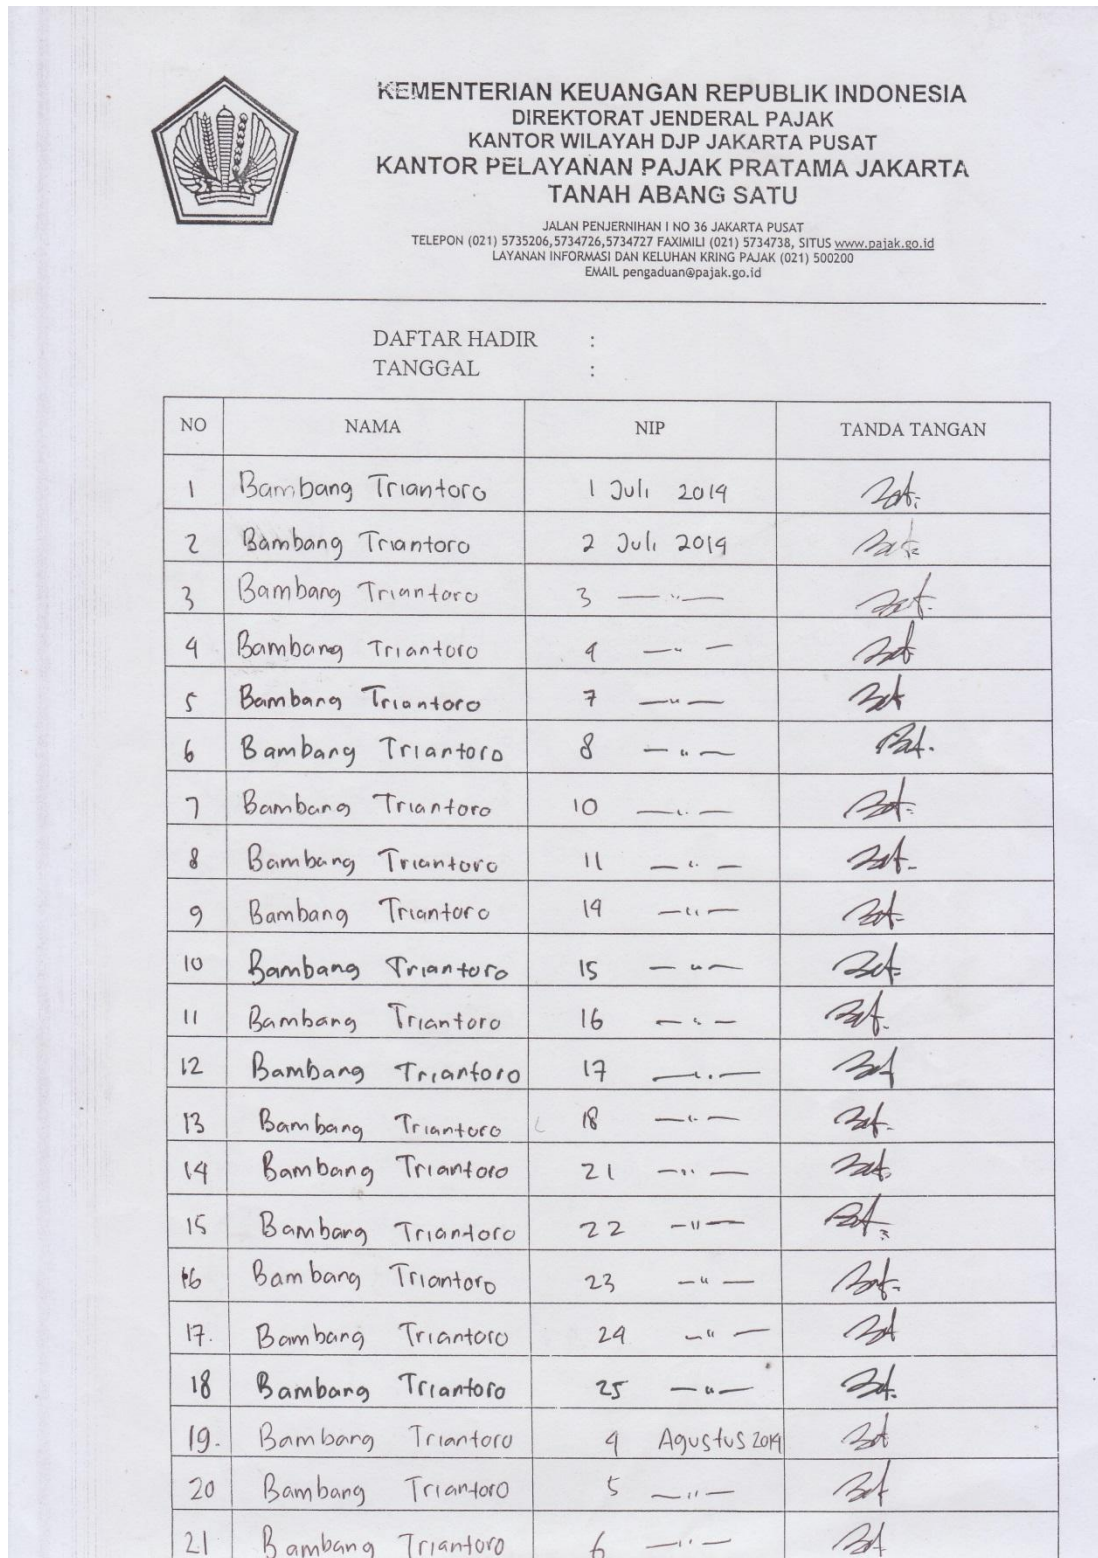 KEMENTERIAN KEUANGAN REPUBLIK INDONESIA
DIREKTORAT JENDERAL PAJAK
KANTOR WILAYAH DJP JAKARTA PUSAT
KANTOR PELAYANAN PAJAK PRATAMA JAKARTA
TANAH ABANG SATU
JALAN PENJERNIHAN I NO 36 JAKARTA PUSAT
TELEPON (021) 5735206,5734726,5734727 FAXIMILI (021) 5734738, SITUS www.pajak.go.id
LAYANAN INFORMASI DAN KELUHAN KRING PAJAK (021) 500200
EMAIL pengaduan@pajak.go.id
DAFTAR HADIR :
TANGGAL :
NO NAMA NIP TANDA TANGAN
1 Bambang Triantoro 1 Juli 2014
2 Bambang Triantoro 2 Juli 2014
3 Bambang Triantoro 3 — " —
4 Bambang Triantoro 4 — " —
5 Bambang Triantoro 7 — " —
6 Bambang Triantoro 8 — " —
7 Bambang Triantoro 10 — " —
8 Bambang Triantoro 11 — " —
9 Bambang Triantoro 14 — " —
10 Bambang Triantoro 15 — " —
11 Bambang Triantoro 16 — " —
12 Bambang Triantoro 17 — " —
13 Bambang Triantoro 18 — " —
14 Bambang Triantoro 21 — " —
15 Bambang Triantoro 22 — " —
16 Bambang Triantoro 23 — " —
17. Bambang Triantoro 24 — " —
18 Bambang Triantoro 25 — " —
19. Bambang Triantoro 4 Agustus 2014
20 Bambang Triantoro 5 — " —
21 Bambang Triantoro 6 — " —